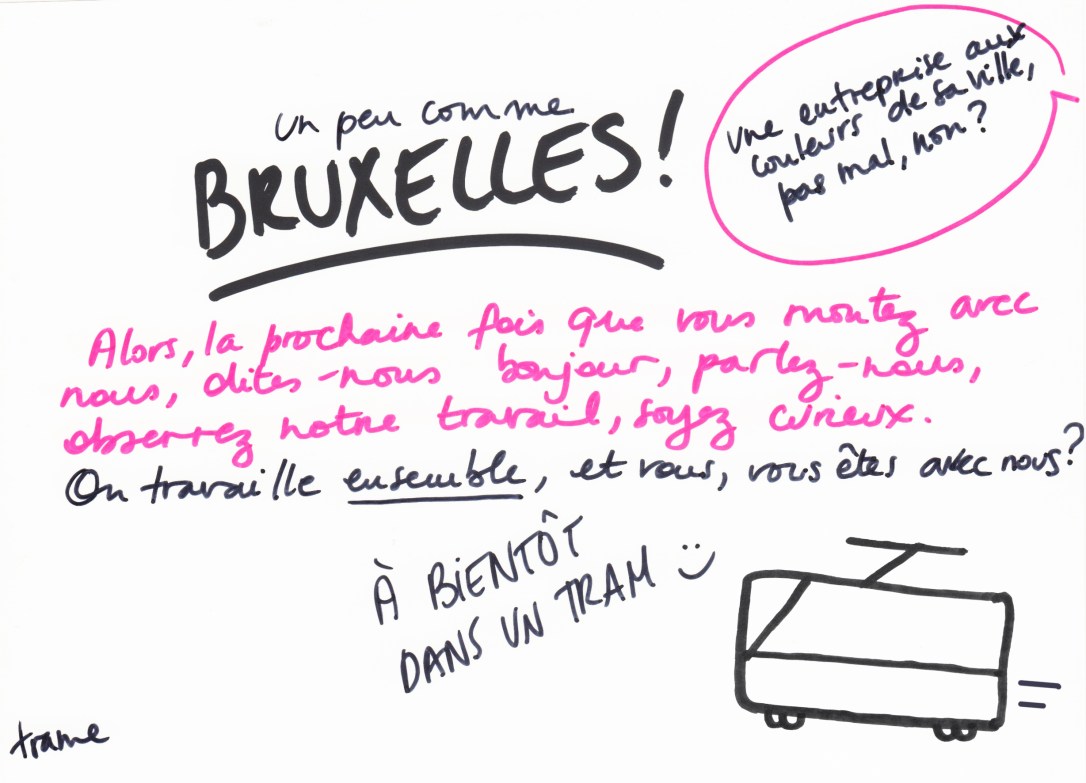 un peu comme
BRUXELLES!
une entreprise aux
couleurs de sa ville,
pas mal, non?
Alors, la prochaine fois que vous montez avec
nous, dites-nous bonjour, parlez-nous,
observez notre travail, soyez curieux.
On travaille ensemble, et vous, vous êtes avec nous?
À BIENTÔT
DANS UN TRAM :)
trame